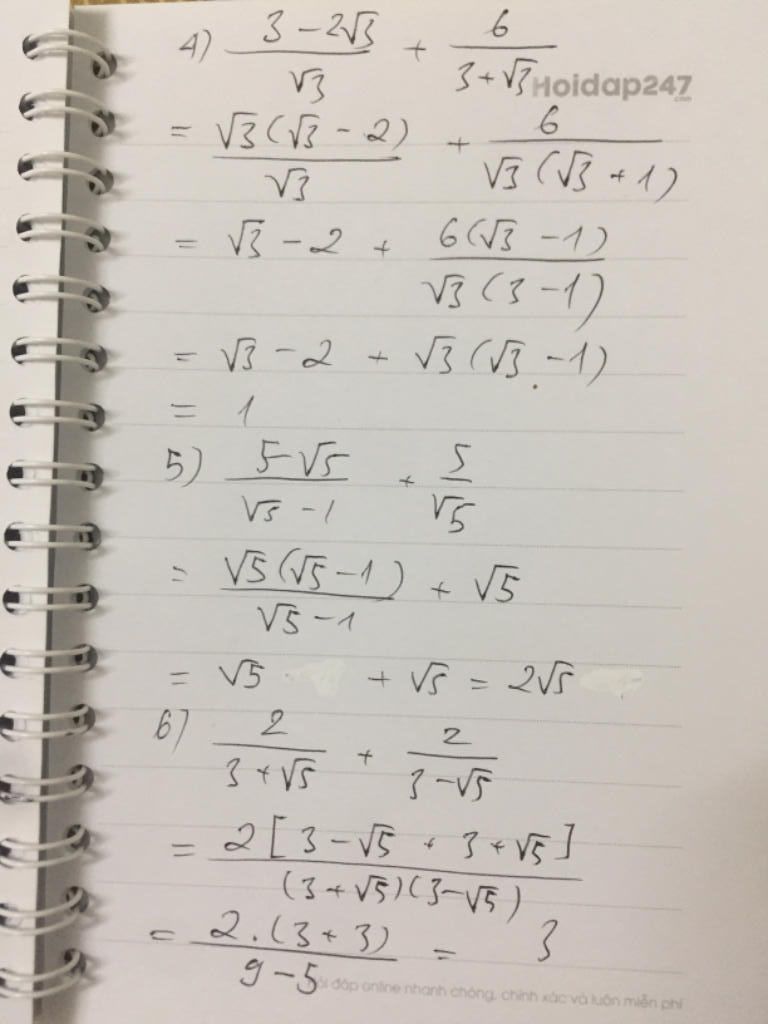 4) (3 - 2√3)/√3 + 6/(3 + √3)
Hoidap247
.com
= √3(√3 - 2)/√3 + 6/(√3(√3 + 1))
= √3 - 2 + 6(√3 - 1)/(√3(3 - 1))
= √3 - 2 + √3(√3 - 1)
= 1
5) (5 - √5)/(√5 - 1) + 5/√5
= √5(√5 - 1)/(√5 - 1) + √5
= √5 + √5 = 2√5
6) 2/(3 + √5) + 2/(3 - √5)
= 2[3 - √5 + 3 + √5]/((3 + √5)(3 - √5))
= 2.(3 + 3)/(9 - 5) = 3
đáp online nhanh chóng, chính xác và luôn miễn phí